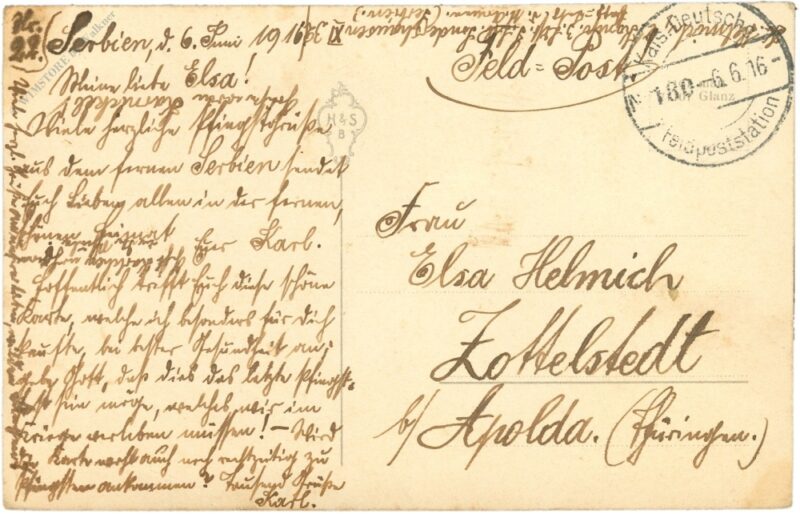 Nr. 22.
Serbien, d. 6. Juni 1916
Meine liebe Elsa!
Viele herzliche Pfingstgrüße
aus dem fernen Serbien sendet
Euch Lieben allen in der fernen,
schönen Heimat
Euer Karl.
Hoffentlich trifft Euch diese schöne
Karte, welche ich besonders für Dich
kaufte, bei bester Gesundheit an;
gebe Gott, daß dies das letzte Pfingst-
fest sein möge, welches wir im
Kriege verleben müssen! – Wird
die Karte wohl auch noch rechtzeitig zu
Pfingsten ankommen? Tausend Grüße
Karl.
Feld = Post
Kais. Deutsche
180 6.6.16
Feldpoststation
Glanz
H & S
B
Frau
Elsa Helmich
Zottelstedt
b/ Apolda. (Thüringen.)